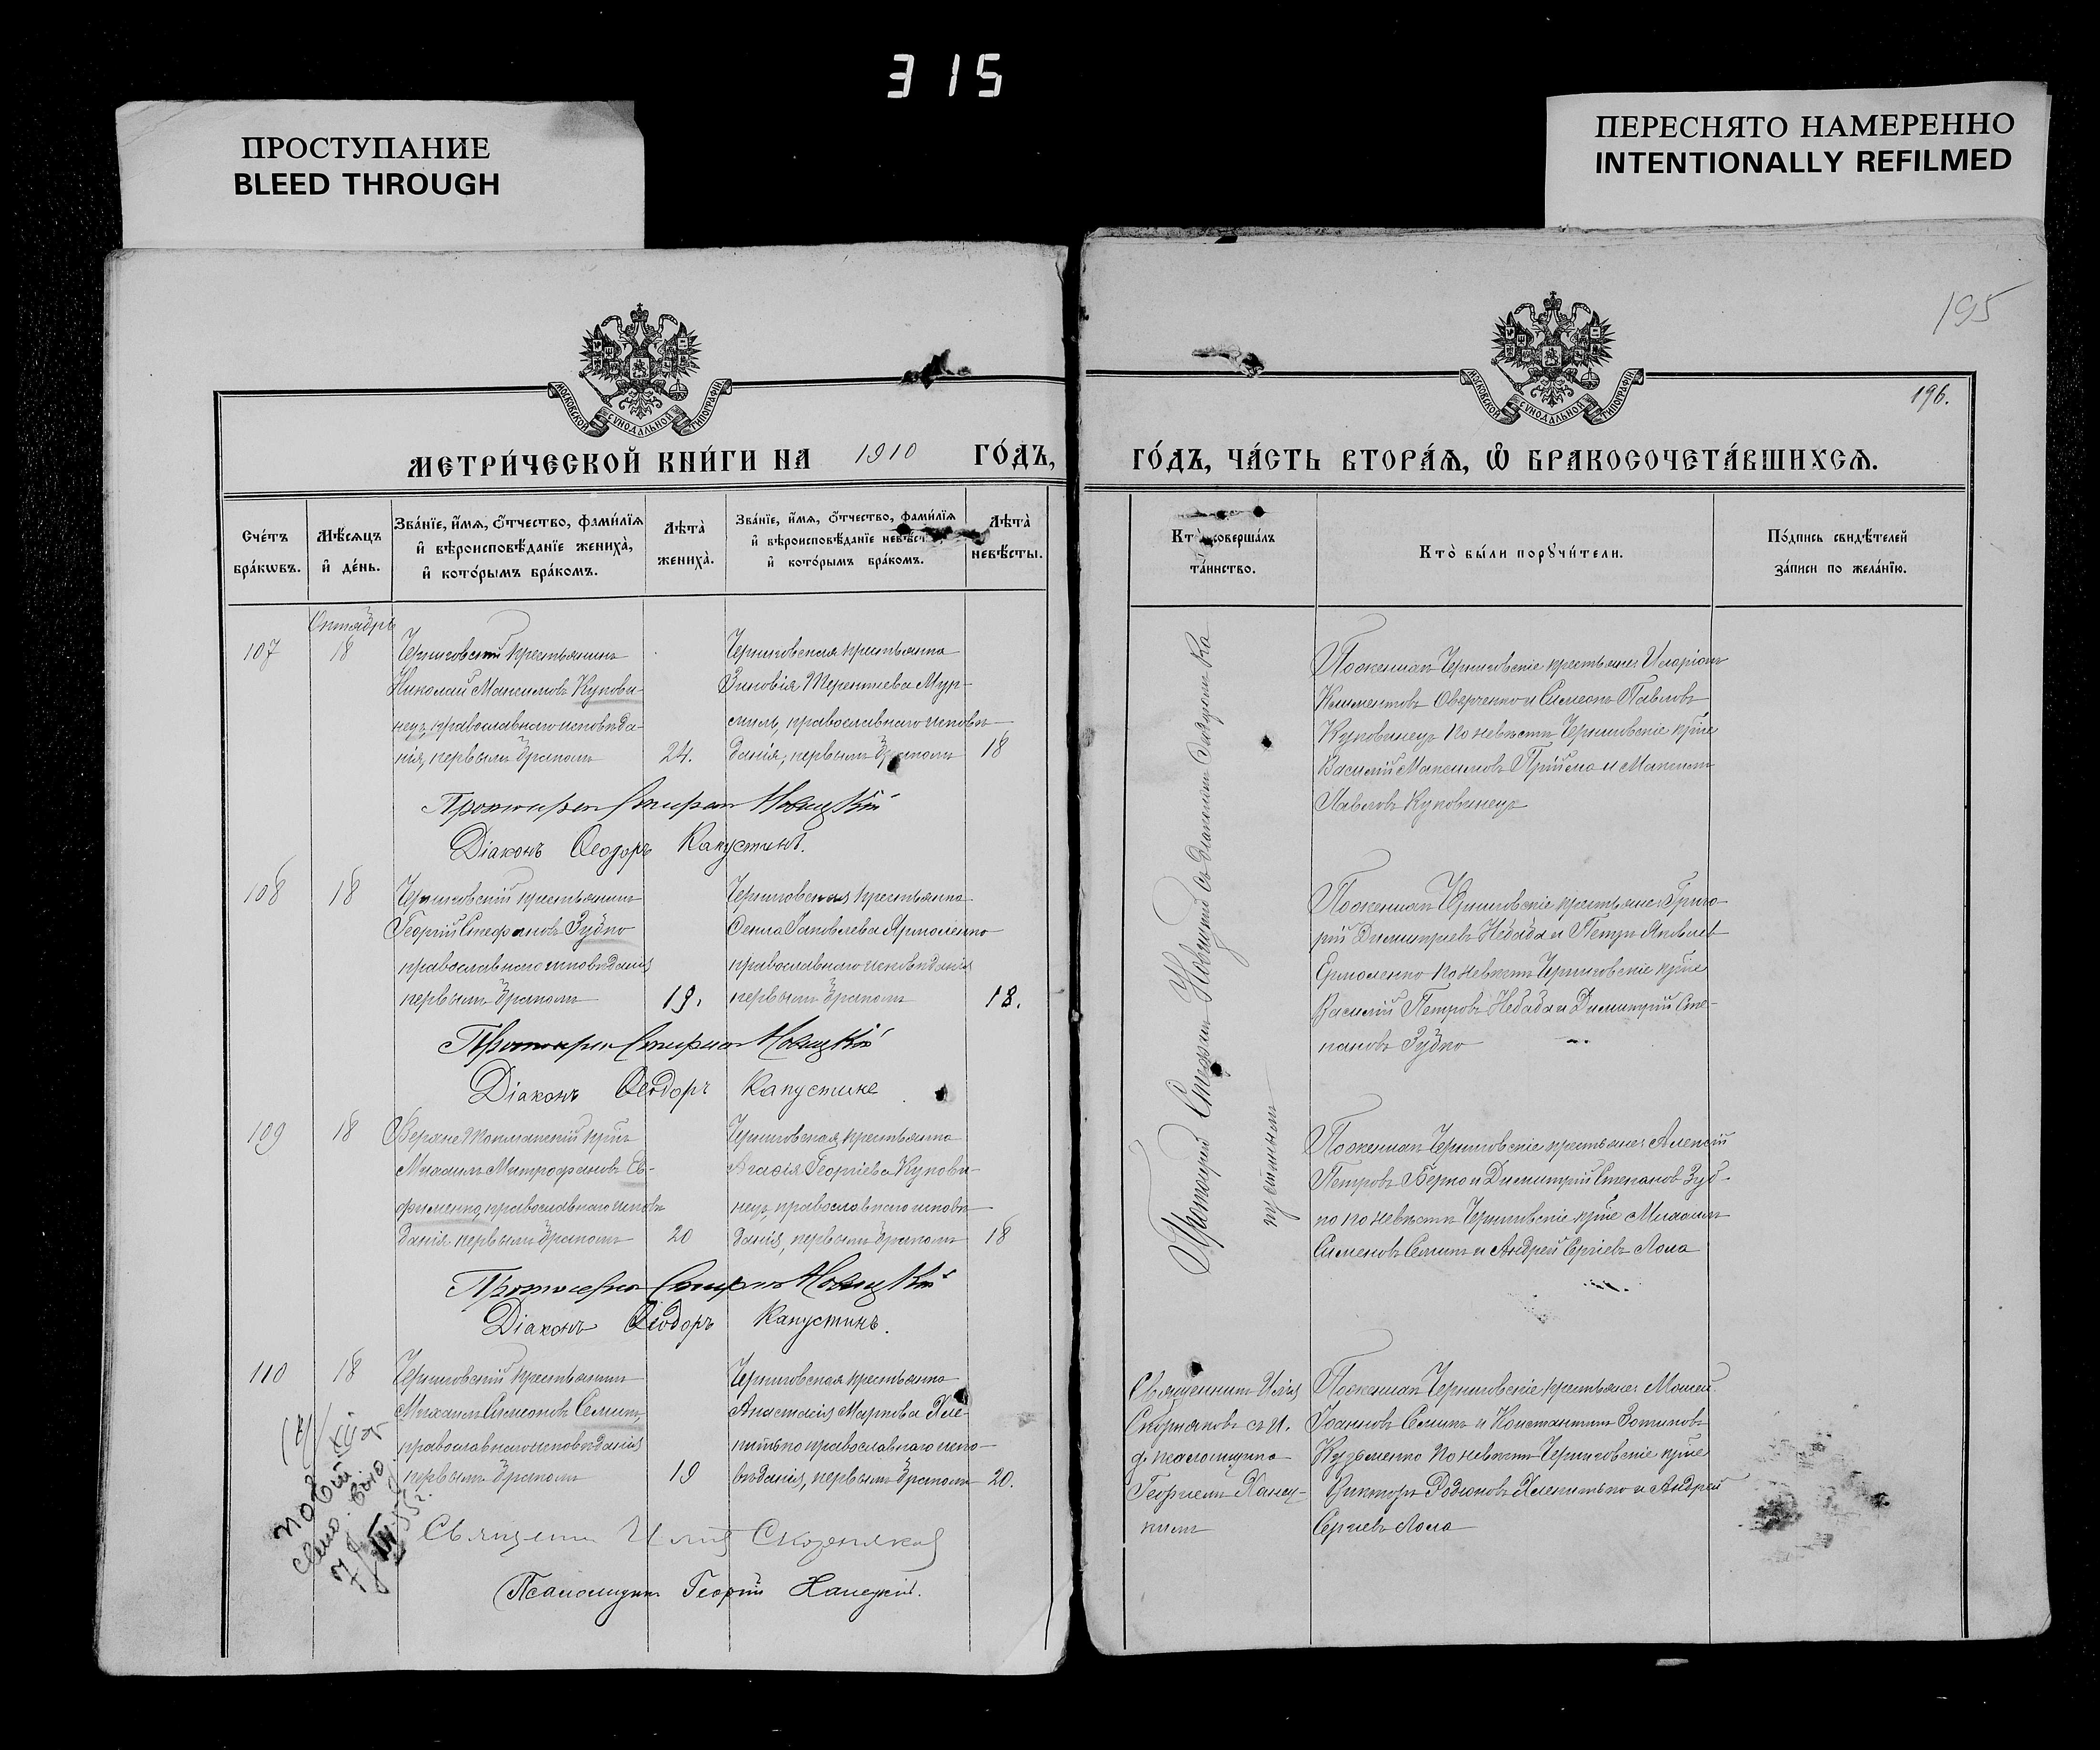 315
ПРОСТУПАНИЕ
BLEED THROUGH
ПЕРЕСНЯТО НАМЕРЕННО
INTENTIONALLY REFILMED
195
196.
МОСКОВСКОЙ СѴНОДАЛЬНОЙ ТИПОГРАФІИ
МЕТРИ́ЧЕСКОЙ КНИ́ГИ НА 1910 ГО́ДЪ,
Сче́тъ бра́кѡвъ.
Мѣ́сяцъ и҆ де́нь.
Зва́нїе, и҆́мѧ, ѻ҆́тчество, фами́лїѧ
и҆ вѣроисповѣ́данїе жениха̀,
и҆ кото́рымъ бра́комъ.
Лѣта̀ жениха̀.
Зва́нїе, и҆́мѧ, ѻ҆́тчество, фами́лїѧ
и҆ вѣроисповѣ́данїе невѣ́ст
и҆ кото́рымъ бра́комъ.
Лѣта̀ невѣ́сты.
Октябрь
107
18
Черниговскій крестьянинъ
Николай Максимовъ Кукови-
нецъ, православнаго исповѣда-
нія, первымъ бракомъ
24.
Черниговская крестьянка
Зиновія Терентіева Мур-
православнаго исповѣ-
данія, первымъ бракомъ
18
Протоіерей Стефанъ Новицкій
Діаконъ Ѳеодоръ Капустинъ.
108
18
Черниговскій крестьянинъ
Георгій Стефановъ Зубко
православнаго исповѣданія
первымъ бракомъ
19.
Черниговская крестьянка
Ярмоленко
православнаго исповѣданія
первымъ бракомъ
18.
Протоіерей Стефанъ Новицкій
Діаконъ Ѳеодоръ Капустинъ
109
18
Верхне Токмакскій кр-нъ
Михаилъ Митрофановъ Ев-
фименко, православнаго исповѣ-
данія первымъ бракомъ
20
Черниговская крестьянка
Агафія Георгіева Кукови-
нецъ, православнаго исповѣ-
данія, первымъ бракомъ
18
Протоіерей Стефанъ Новицкій
Діаконъ Ѳеодоръ Капустинъ.
110
18
Черниговскій крестьянинъ
Михаилъ Симеоновъ Семикъ,
православнаго исповѣданія
первымъ бракомъ
19
Черниговская крестьянка
Анастасія Маркова Хле-
питько православнаго испо-
вѣданія, первымъ бракомъ
20.
Священ Илія Скорняковъ
Псаломщикъ Георгій Ханецкій.
ГО́ДЪ, ЧА́СТЬ ВТОРА́Ѧ, Ѡ҆ БРАКОСОЧЕТА́ВШИХСѦ.
МОСКОВСКОЙ СѴНОДАЛЬНОЙ ТИПОГРАФІИ
Кто̀ соверша́лъ та́инство.
Кто̀ бы́ли порꙋчи́тели.
По́дпись свидѣ́телей за́писи по жела́нїю.
Протоіерей Стефанъ Новицкій съ діакономъ Ѳеодоромъ Ка
пустинымъ
По женихѣ Черниговскіе крестьяне
Климентовъ Оверченко и Симеонъ Павловъ
Куковинецъ по невѣстѣ Черниговскіе кр-не
Василій Максимовъ Прійма и Максимъ
Павловъ Куковинецъ
По женихѣ Черниговскіе крестьяне Григо
рій Димитріевъ Небаба и Петръ Яковлевъ
Ермоленко по невѣстѣ Черниговскіе кр-не
Василій Петровъ Небаба и Димитрій Сте-
пановъ Зубко
По женихѣ Черниговскіе крестьяне Алексій
Петровъ Берко и Димитрій Степановъ Зуб-
ко по невѣстѣ Черниговскіе кр-не Михаилъ
Сименовъ Семикъ и Андрей Сергіевъ Лола
Священникъ Илія
Скорняковъ съ И.
д. псаломщика
Георгіемъ Ханец-
кимъ
По женихѣ Черниговскіе крестьяне Моисей
Іоанновъ Семикъ и Константинъ Зотиковъ
Кузьменко по невѣстѣ Черниговскіе кр-не
Викторъ Родіоновъ Хлепитько и Андрей
Сергіевъ Лола